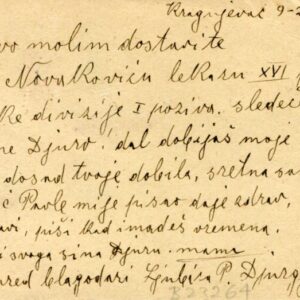 Kragujevac 9-2
vo molim dostavite
Novakoviću lekaru XVI
ke divizije I poziva. sledeće
ne Djuro! dal dobijaš moje
dosad tvoje dobila, sretna sa
ć Pavle mi je pisao da je zdrav,
avi, piši kad imadeš vremena.
i svoga sina Djuru. mama.
pred blagodari Ljubiša P. Djurg